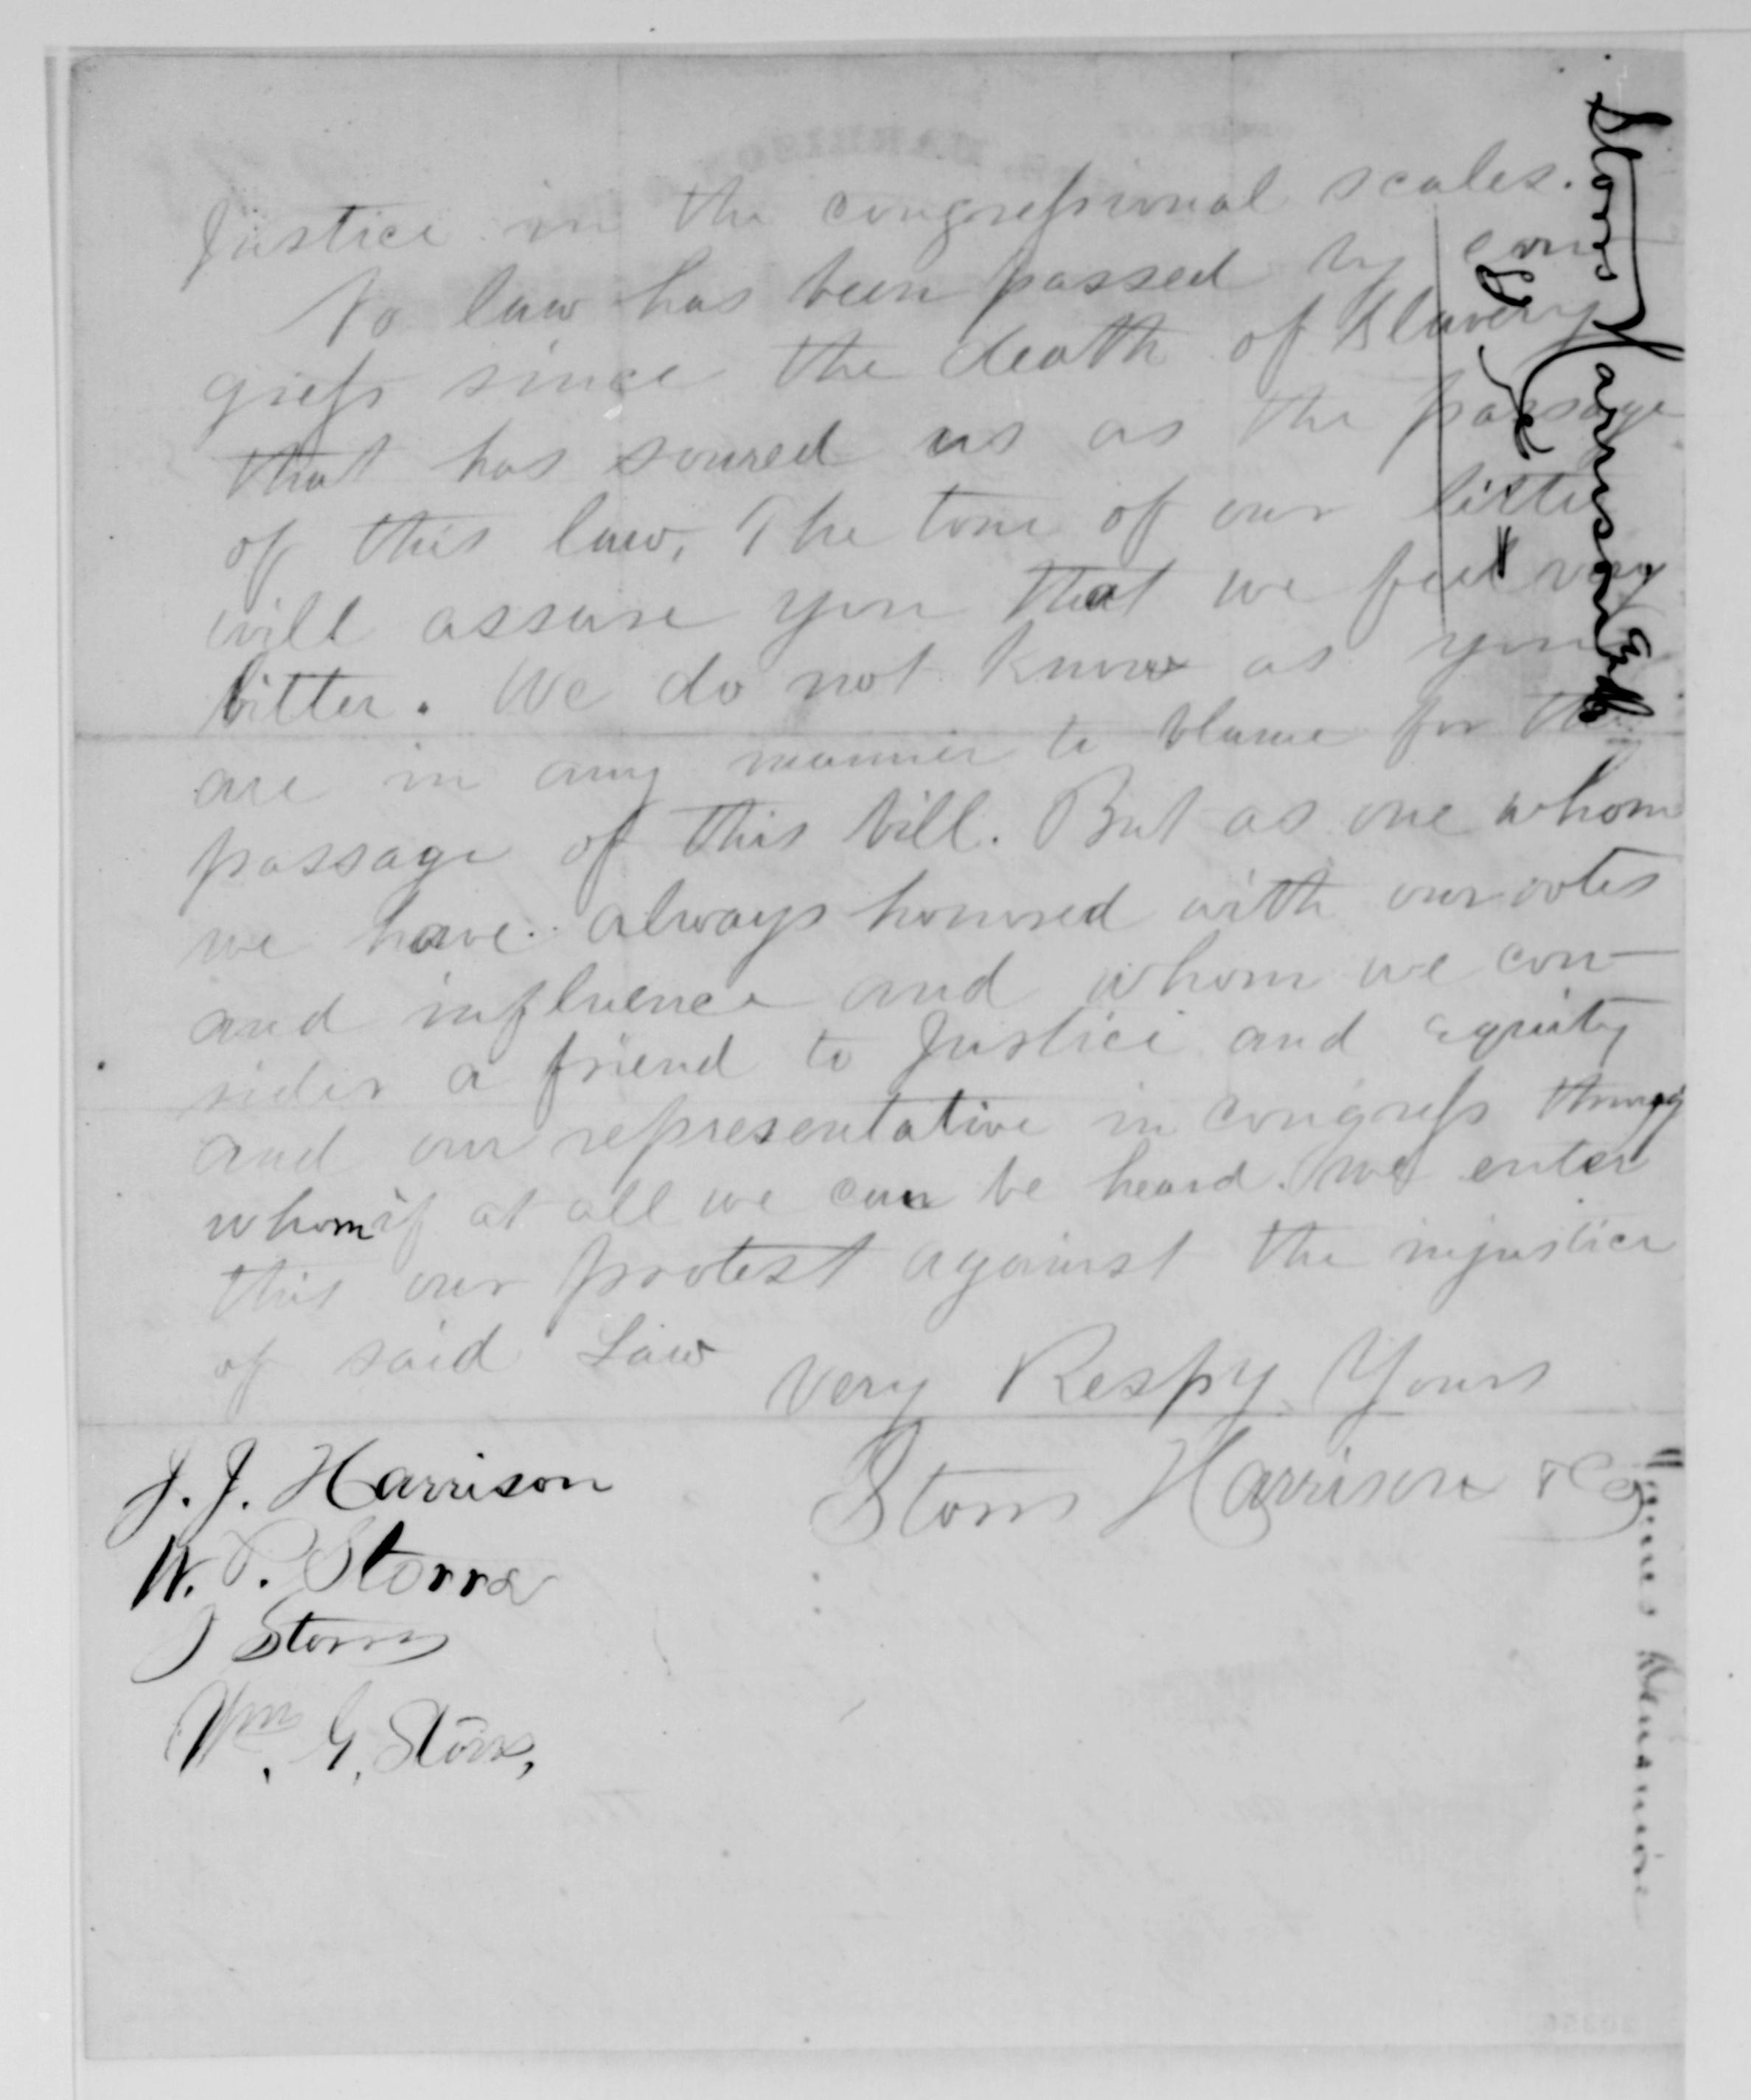 Justice in the congressional scales.
No law has been passed by con
gress since the death of Slavery
that has soured us as the passage
of this law. The tone of our letter
will assure you that we feel very
bitter. We do not know as you
are in any manner to blame for the
passage of this bill. But as one whom
we have always honored with our votes
and influence and whom we con-
sider a friend to Justice and equity
and our representative in congress through
whom if at all we can be heard. We enter
this our protest against the injustice
of said Law
Very Respy Yours
Storrs Harrison & Co
J. J. Harrison
W. P. Storrs
J Storrs
Wm. G. Storrs,
Storrs Harrison & Co